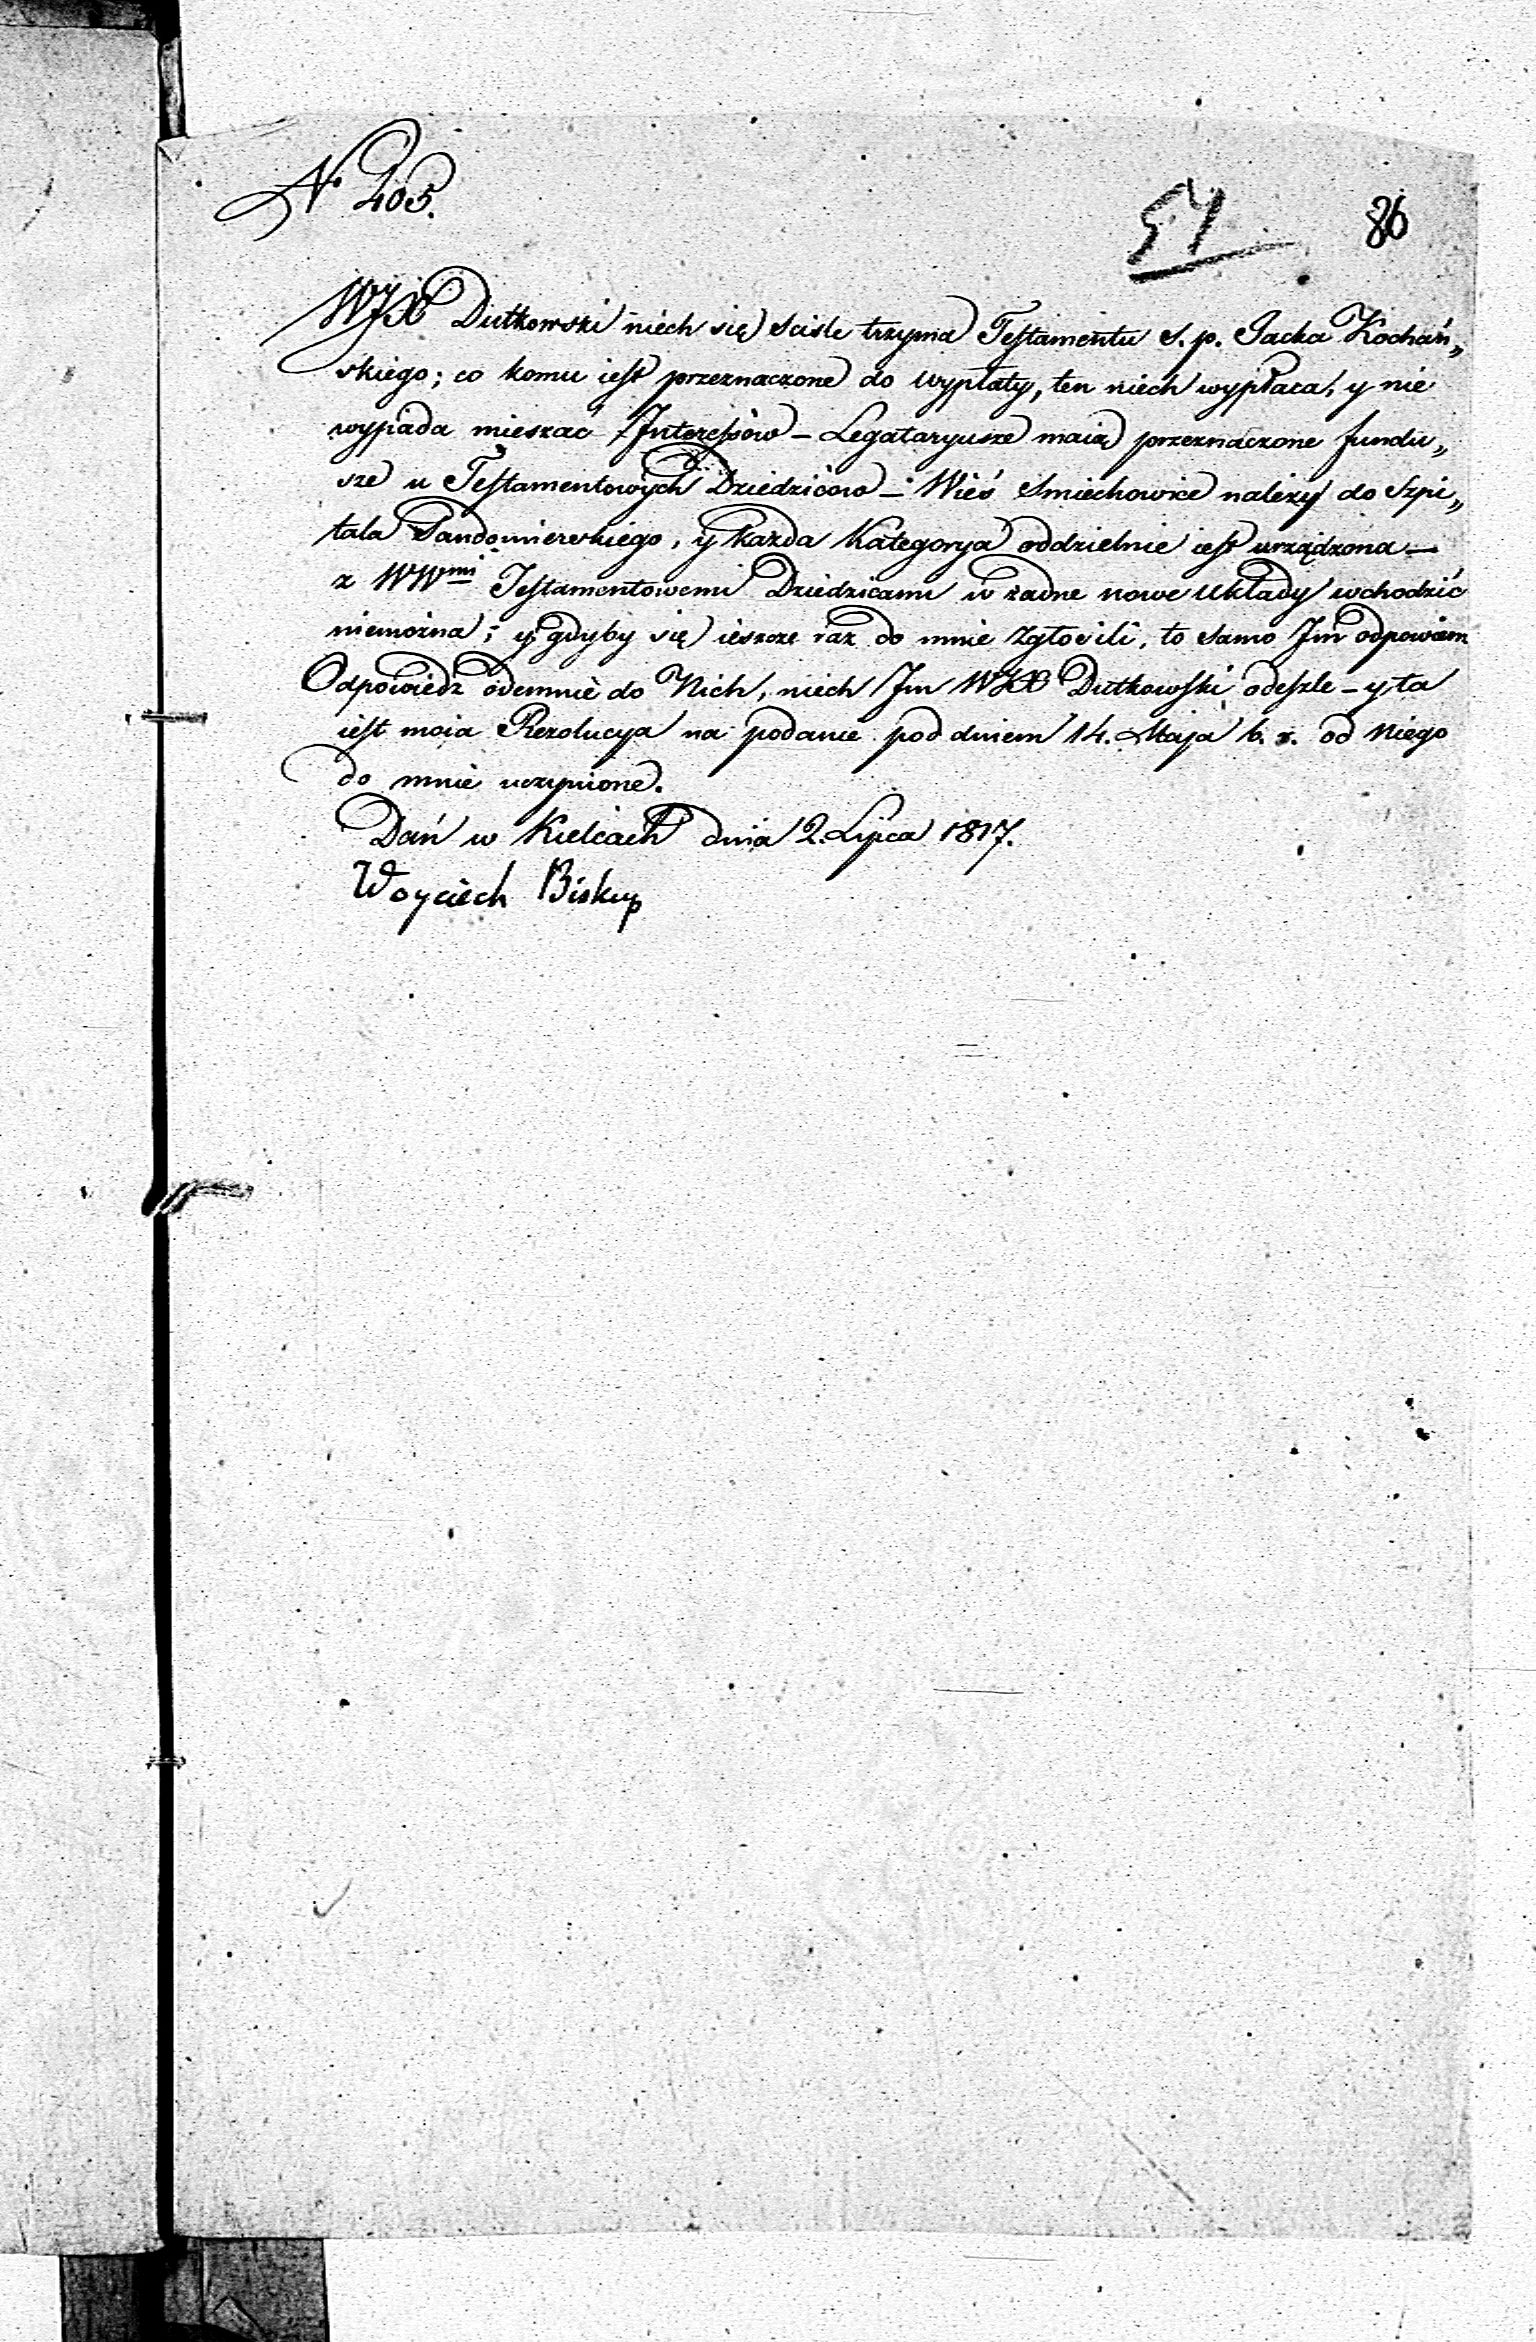 N 205.
54
86
WJX Dutkowski niech się scisle trzyma Testamentu S. p. Jacka Kochań„
skiego; co komu iest przeznaczone do wypłaty, ten niech wypłaca, y nie
wypada mieszać Interessów – Legataryusze maią przeznaczone fundu„
sze u Testamentowych Dziedziców – Wieś Smiechowice należy do Szpi„
tala Sandomierskiego, y każda Kategorya oddzielnie iest urządzona –
z WWmi Testamentowemi Dziedzicami w żadne nowe układy wchodzić
niemożna; y gdyby się ieszcze raz do mnie zgłosili, to samo Im odpowiem
Odpowiedź odemnie do Nich, niech Im WJX Dutkowski odeszle – y ta
iest moia Rezolucya na podanie pod dniem 14. Maja b. r. od niego
do mnie uczynione.
Dań w Kielcach dnia 2. Lipca 1817.
Woyciech Biskup